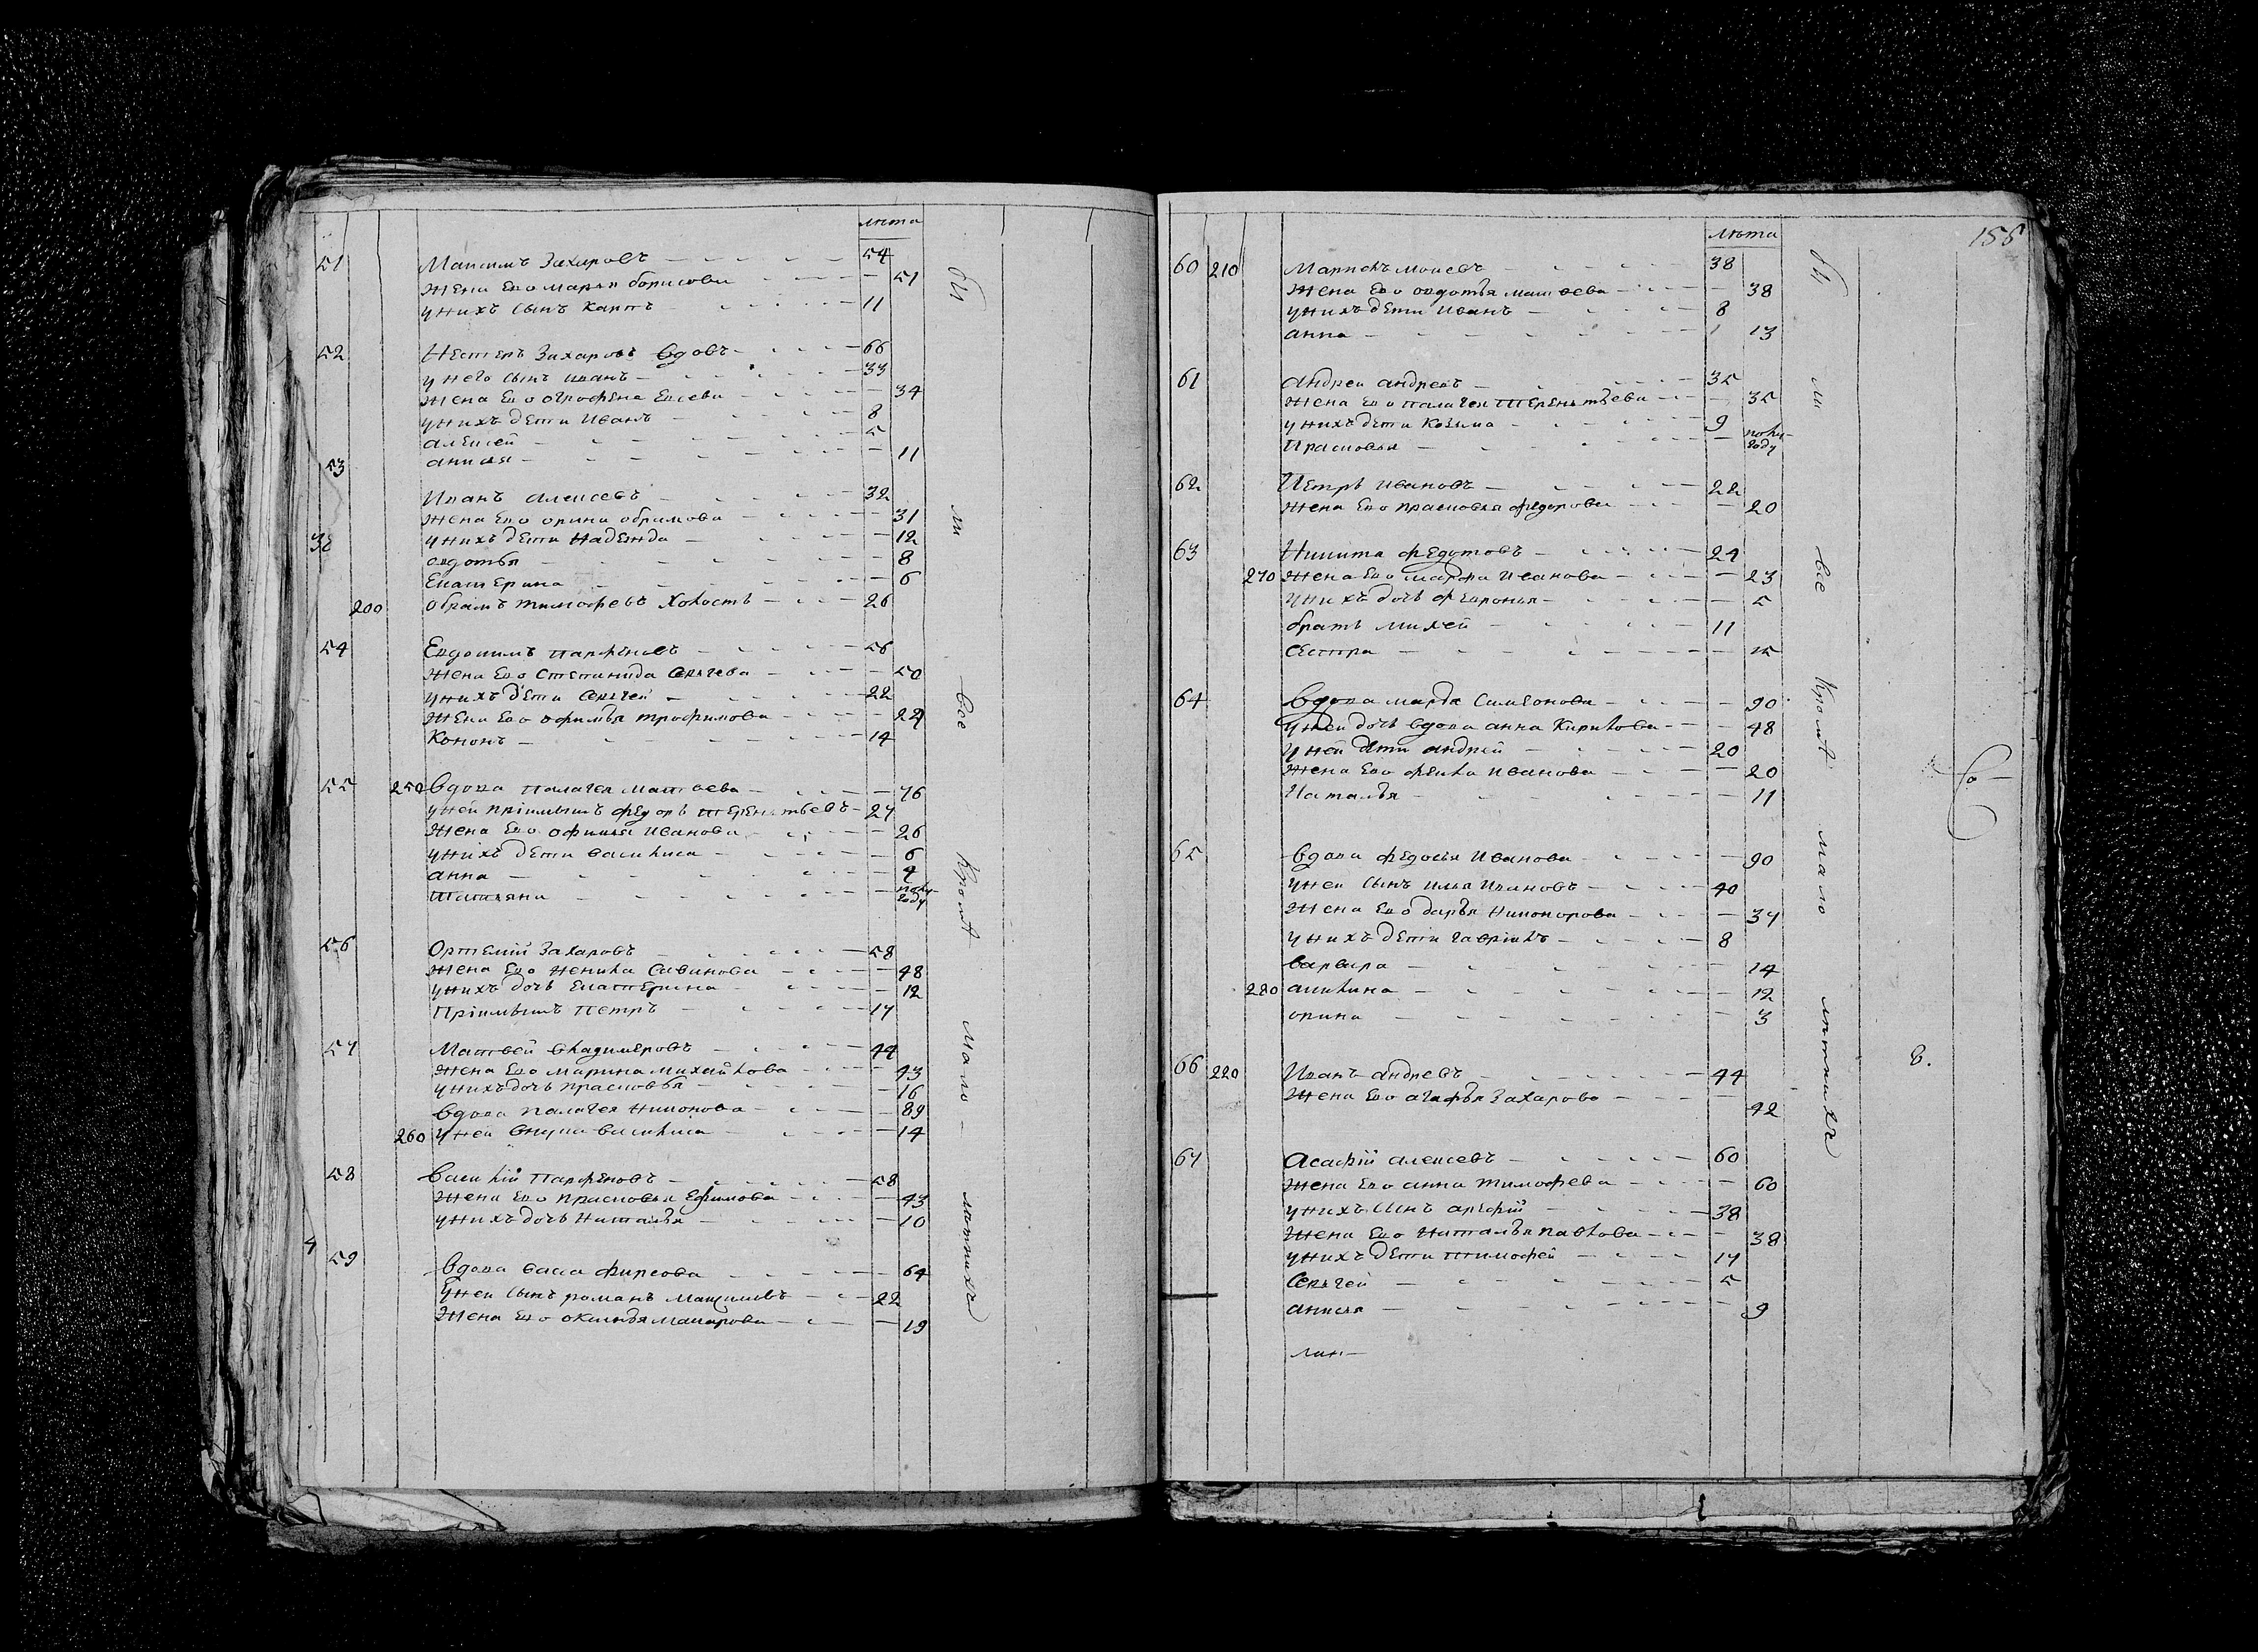 лѣта
51 Максимъ Захаровъ 54
жена Ево марья борисова 51
у нихъ сынъ Карпъ 11
52 Нестеръ Захаровъ вдовъ 66
у него сынъ иванъ 33
жена Ево огрофена Евсева 34
у нихъ дети Иванъ 8
алексей 5
анисья 11
53
Иванъ алексеевъ 32
жена Ево орина обрамова 31
у нихъ дети надежда 12
овдотья 8
Екатерина 6
200 обрамъ тимофевъ холостъ 26
54 Евдокимъ парфеновъ 56
жена Ево степанида сергева 50
у нихъ дети сергей 22
жена Ево офимья трофимова 24
Кононъ 14
55 250 вдова палагея матвева 76
у ней приимышъ федоръ терентьевъ 27
жена Ево офимья иванова 26
у нихъ дети василиса 6
анна 4
татьяна полугоду
56 ортемий Захаровъ 58
жена Ево ненила савинова 48
у нихъ дочь Екатерина 12
приимышъ петръ 17
57 матвей владимеровъ 44
жена Ево марина михайлова 43
у нихъ дочь прасковья 16
вдова палагея никонова 89
260 у ней внука василиса 14
58 василий парфеновъ 58
жена Ево прасковья Ефимова 43
у нихъ дочь наталья 10
4
59 вдова васа фирсова 64
у ней сынъ романъ максимовъ 22
жена Ево оксинья макарова 19
бы ли все Кроме мало летнихъ
лѣта
60 210 маркелъ моисевъ 38
жена Ево овдотья матвева 38
у нихъ дети иванъ 8
анна 13
61 андреи андревъ 35
жена Ево палагея терентьева 35
у нихъ дети Козьма 9
прасковья полугоду
62 Петръ ивановъ 22
жена Ево прасковья федорова 20
63 никита федотовъ 24
270 жена Ево марфа иванова 23
у нихъ дочь февронья 5
братъ михей 11
сестра 15
64 вдова марфа симеонова 90
у ней дочь вдова анна Кирилова 48
у ней дети андрей 20
жена Ево фекла иванова 20
наталья 11
65 вдова федосья иванова 90
у ней сынъ илья ивановъ 40
жена Ево дарья никонорова 37
у нихъ дети гаврилъ 8
варвара 14
280 акилина 12
орина 3
66 220 Иванъ андревъ 44
жена Ево агафья Захарова 42
67 асафий алексевъ 60
жена Ево анна тимофева 60
у нихъ сынъ арефий 38
жена Ево наталья павлова 38
у нихъ дети тимофей 17
сергей 5
анисья 9
бы ли все Кроме мало летнихъ